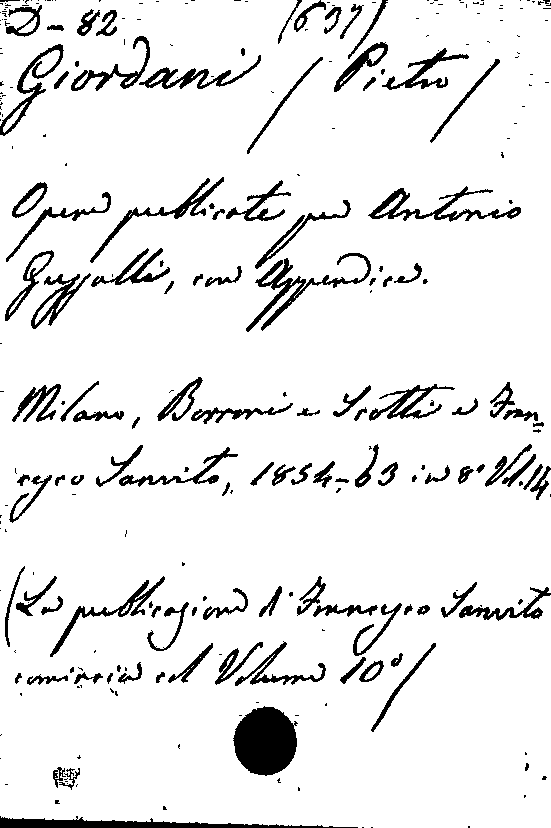 D-82 (637)
Giordani / Pietro /
Opere publicate per Antonio
Gussalli, con Appendice.
Milano, Borroni e Scotti e Fran=
cesco Sanvito, 1854-63 in 8° Vol. 14.
(La publicazione di Francesco Sanvito
comincia col Volume 10°/